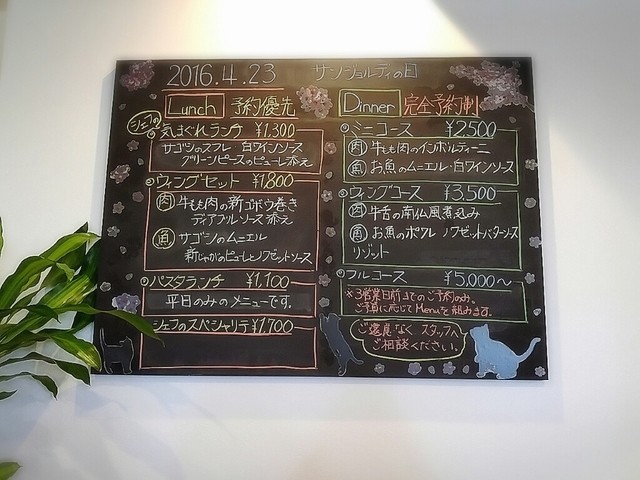 2016.4.23 サンジョルディの日
Lunch 予約優先
シェフの
気まぐれランチ ¥1,300
サゴシのスフレ 白ワインソース
グリーンピースのピューレ添え
ウィングセット ¥1,800
肉 牛もも肉の新ゴボウ巻き
ディアブルソース添え
魚 サゴシのムニエル
新じゃがのピューレとノワゼットソース
パスタランチ ¥1,100
平日のみのメニューです。
シェフのスペシャリテ ¥1,700
Dinner 完全予約制
ミニコース ¥2500
肉 牛もも肉のインボルティーニ
魚 お魚のムニエル・白ワインソース
ウィングコース ¥3,500
肉 牛舌の南仏風煮込み
魚 お魚のポワレ ノワゼットバターソース
リゾット
フルコース ¥5,000〜
※3営業日前までのご予約のみ。
ご予算に応じてMenuを組みます。
ご遠慮なく スタッフへ
ご相談ください。